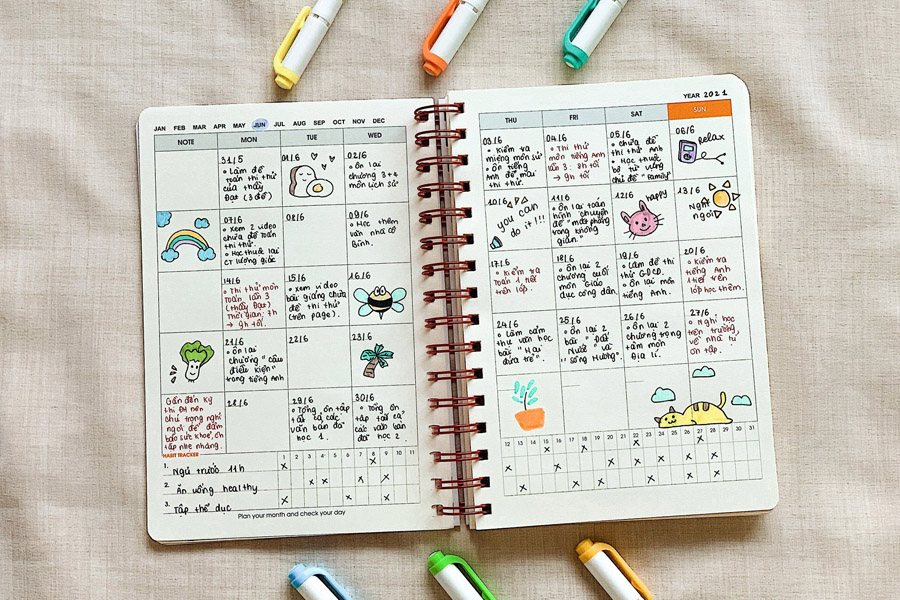 JAN FEB MAR APR MAY JUN JUL AUG SEP OCT NOV DEC
NOTE MON TUE WED
31/5
• Làm đề
toán thi thử
của thầy
Đạt (3 đề)
01/6
02/6
• Ôn lại
chương 3+4
môn Lịch sử
07/6
• Xem 2 video
chữa đề toán
thi thử.
• Học thuộc lại
CT lượng giác
08/6
09/6
• Học thêm
văn nhà cô
Bình.
14/6
• Thi thử môn
Toán lần 3
(thầy Đạt)
Thời gian: 7h
→ 9h tối.
15/6
• Xem video
bài giảng chữa
đề thi thử
(trên page).
16/6
21/6
• Ôn lại
chương "câu
điều kiện"
trong tiếng Anh
22/6
23/6
Gần đến kỳ
thi ĐH nên
chú trọng nghỉ
ngơi để đảm
bảo sức khoẻ, ôn
tập nhẹ nhàng.
28/6
29/6
• Tổng ôn tập
tất cả các
văn bản đã
học 1.
30/6
• Tổng ôn
tập tất cả
các văn bản
đã học 2.
HABIT TRACKER
1 2 3 4 5 6 7 8 9 10 11
1. Ngủ trước 11h
2. Ăn uống healthy
3. Tập thể dục
Plan your month and check your day
YEAR 2021
THU FRI SAT SUN
03/6
• Kiểm tra
miệng môn sử
• Ôn tiếng
Anh đề mẫu
thi thử.
04/6
• Thi thử
môn tiếng Anh
lần 3: 8h tối
→ 9h tối
05/6
• chữa đề
thi thử Anh
• Học thuộc
bộ từ vựng
chủ đề "family"
06/6
relax
10/6
you can
do it!!!
11/6
• Ôn lại toán
hình chuyên
đề "mặt phẳng
trong không
gian."
12/6
happy
13/6
Nghỉ
ngơi
17/6
• Kiểm tra
Toán 1 tiết
trên lớp.
18/6
• Ôn lại 2
chương cuối
môn Giáo
dục công dân.
19/6
• Làm đề thi
thử GDCD.
• Ôn lại môn
tiếng Anh.
20/6
• Kiểm tra
tiếng Anh
1 tiết trên
lớp học thêm.
24/6
• Làm cảm
thụ văn học
bài "Hai
đứa trẻ".
25/6
• Ôn lại 2
bài "Đất
Nước" và
"sông Hương".
26/6
• Ôn lại 2
chương trọng
tâm môn
Địa lí.
27/6
• Nghỉ học
trên trường,
về nhà tự
ôn tập.
12 13 14 15 16 17 18 19 20 21 22 23 24 25 26 27 28 29 30 31